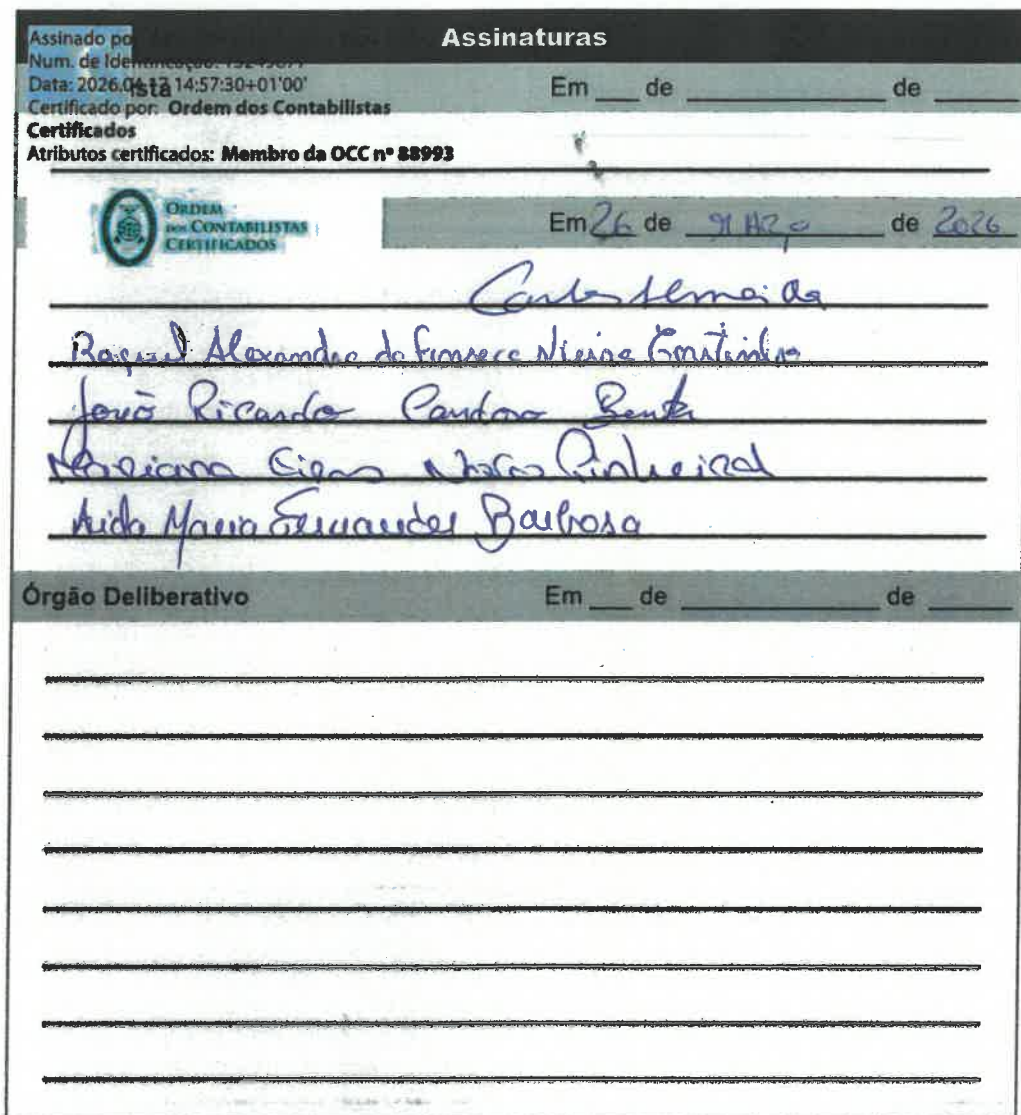 Assinaturas
Assinado po
Num. de Identificação:
Data: 2026.04.17 14:57:30+01'00'
ista
Em ___ de ___ de ___
Certificado por: Ordem dos Contabilistas
Certificados
Atributos certificados: Membro da OCC nº 88993
ORDEM
DOS CONTABILISTAS
CERTIFICADOS
Em 26 de MARÇO de 2026
Carlos Almeida
Raquel Alexandra da Fonseca Vieira Constantino
João Ricardo Cardoso Bento
Mariana Pinheiral
Aida Maria Fernandes Barbosa
Órgão Deliberativo
Em ___ de ___ de ___